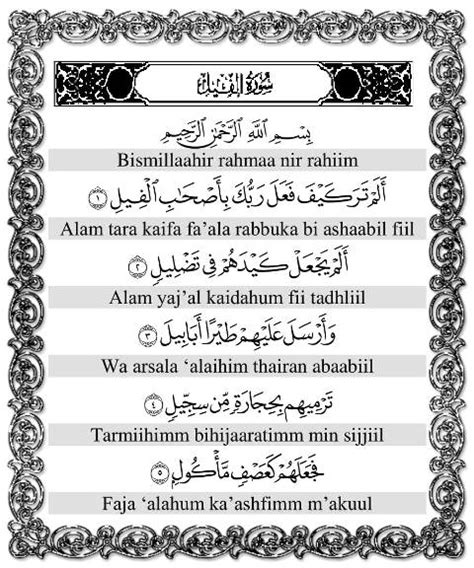 سُورَةُ الْفِيْلِ
بِسْمِ اللَّهِ الرَّحْمَٰنِ الرَّحِيمِ
Bismillaahir rahmaa nir rahiim
أَلَمْ تَرَ كَيْفَ فَعَلَ رَبُّكَ بِأَصْحَابِ الْفِيلِ ١
Alam tara kaifa fa’ala rabbuka bi ashaabil fiil
أَلَمْ يَجْعَلْ كَيْدَهُمْ فِي تَضْلِيلٍ ٢
Alam yaj’al kaidahum fii tadhliil
وَأَرْسَلَ عَلَيْهِمْ طَيْرًا أَبَابِيلَ ٣
Wa arsala ‘alaihim thairan abaabiil
تَرْمِيهِم بِحِجَارَةٍ مِّن سِجِّيلٍ ٤
Tarmiihimm bihijaaratimm min sijjiil
فَجَعَلَهُمْ كَعَصْفٍ مَّأْكُولٍ ٥
Faja ‘alahum ka’ashfimm m’akuul